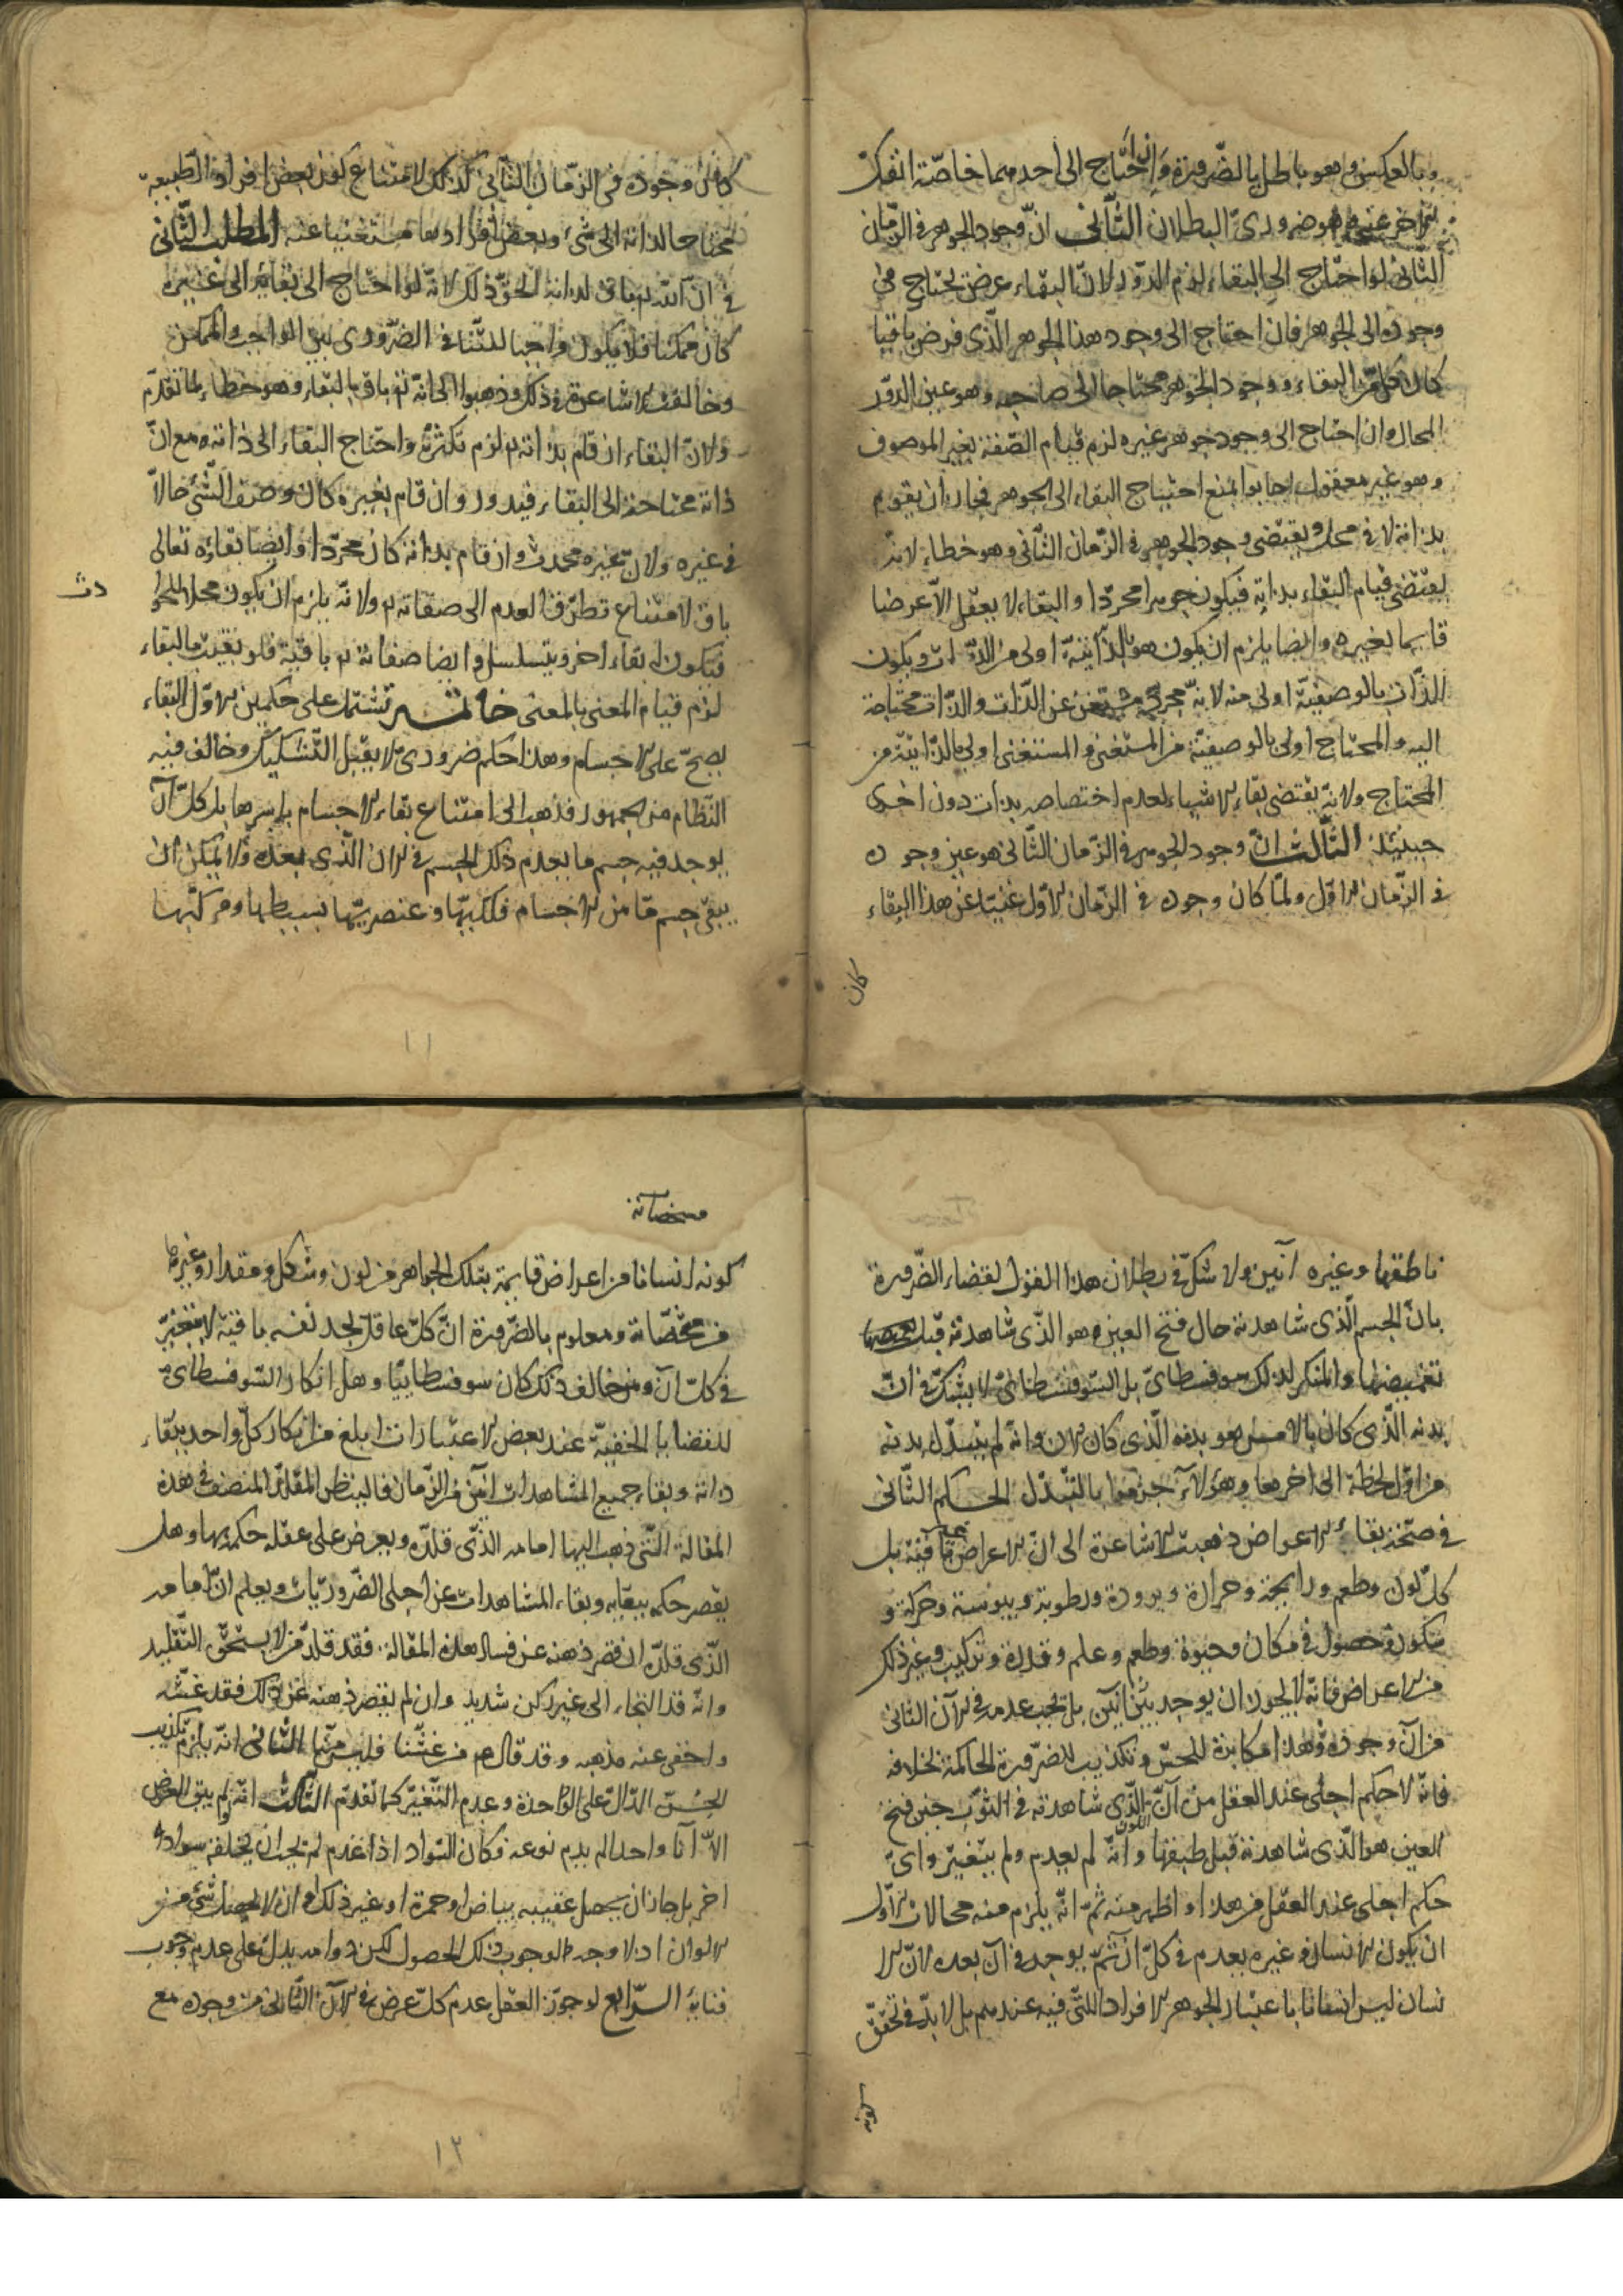 وبالعكس وهو باطل بالضرورة وان احتاج الى احدهما خاصة انفك
الاخر عنه وهو ضرورى البطلان الثانى انّ وجود الجوهر فى الزمان
الثانى لو احتاج الى البقاء لزم الدور لان البقاء عرض يحتاج فى
وجوده الى الجوهر فان احتاج الى وجود هذا الجوهر الذى فرض باقيا
كان كل من البقاء ووجود الجوهر محتاجا الى صاحبه وهو عين الدور
المحال وان احتاج الى وجود جوهر غيره لزم قيام الصفة بغير الموصوف
وهو غير معقول اجابوا بمنع احتياج البقاء الى الجوهر فجاز ان يقوم
بذاته لا فى محل ويقتضى وجود الجوهر فى الزمان الثانى وهو خطاء لانه
يقتضى قيام البقاء بذاته فيكون جوهرا مجردا والبقاء لا يعقل الا عرضا
قايما بغيره وايضا يلزم ان يكون هو بالذاتية اولى من الذات ويكون
الذات بالوصفية اولى منه لانه مجرد مستغن عن الذات والذات محتاجة
اليه والمحتاج اولى بالوصفية من المستغنى والمستغنى اولى بالذاتية من
المحتاج ولانه يقتضى بقاء الاشياء لعدم اختصاصه بذات دون اخرى
حينئذ الثالث انّ وجود الجوهر فى الزمان الثانى هو عين وجوده
فى الزمان الاول ولمّا كان وجوده فى الزمان الاول غنيا عن هذا البقاء
كان
كان وجوده فى الزمان الثانى كذلك لامتناع كون بعض افراد الطبيعة
محتاجا لذاته الى شىء وبعض افرادها مستغنيا عنه المطلب الثانى
فى ان الله تم باق لذاته الحق ذلك لانه لو احتاج الى بقايه الى غيره
كان ممكنا فلا يكون واجبا للتنافى الضرورى بين الواجب والممكن
وخالفت الاشاعرة فى ذلك وذهبوا الى انه تم باق بالبقاء وهو خطاء لما تقدم
ولان البقاء ان قام بذاته تم لزم تكثره واحتاج البقاء الى ذاته مع ان
ذاته محتاجة الى البقاء فيدور وان قام بغيره كان وصف الشىء حالا
فى غيره ولان غيره محدث وان قام بذاته كان مجردا وايضا بقاؤه تعالى
باق لامتناع تطرق العدم الى صفاته تم ولانه يلزم ان يكون محلا للحوا
دث
فيكون له بقاء اخر ويتسلسل وايضا صفاته تم باقية فلو بقيت بالبقاء
لزم قيام المعنى بالمعنى خاتمة تشتمل على حكمين الاول البقاء
يصح على الاجسام وهذا حكم ضرورى لا يقبل التشكيك وخالف فيه
النظام من الجمهور فذهب الى امتناع بقاء الاجسام باسرها بل كل آن
يوجد فيه جسم ما يعدم ذلك الجسم فى الان الذى بعده ولا يمكن ان
يبقى جسم ما من الاجسام فلكيها وعنصريها بسيطها ومركبها
١١
ناطقها وغيره آنين ولا شك فى بطلان هذا القول لقضاء الضرورة
بانّ الجسم الذى شاهدته حال فتح العين هو الذى شاهدته قبل
تغميضها والمنكر لذلك سوفسطاى بل السوفسطائى لا يشك فى ان
بدنه الذى كان بالامس هو بدنه الذى كان الان وانه لم يتبدل بدنه
من اول لحظة الى اخرها وهؤلاء جزموا بالتبدل الحكم الثانى
فى صحة بقاء الاعراض ذهبت الاشاعرة الى ان الاعراض غير باقية بل
كل لون وطعم ورايحة وحرارة وبرودة ورطوبة ويبوسة وحركة و
سكون وحصول فى مكان وحيوة وطعم وعلم وقدرة وتركيب وغير ذلك
من الاعراض فانه لا يجوز ان يوجد بين آنين بل يجب عدمه فى الآن الثانى
من آن وجوده وهذا مكابرة للحس وتكذيب للضرورة الحاكمة بخلافه
فانه لا حكم اجلى عند العقل من انّ اللون الذى شاهدته فى الثوب حين فتح
العين هو الذى شاهدته قبل طبقها وانه لم يعدم ولم يتغير واى
حكم اجلى عند العقل من هذا واظهر منه ثم انه يلزم منه محالات الاول
ان يكون الانسان وغيره يعدم فى كل آن ثم يوجد فى آن بعده لان الا
نسان ليس انسانا باعتبار الجوهر الافراد التى فيه عندهم بل لا بد فى تحقق
كونه
مشخصاته
كونه انسانا من اعراض قايمة بتلك الجواهر من لون وشكل ومقدار وغيرها
من مشخصاته ومعلوم بالضرورة ان كل عاقل يجد نفسه باقية لا يتغير
فى كل آن ومن خالف ذلك كان سوفسطاييا وهل انكار السوفسطاى
للقضايا الخفية عند بعض الاعتبارات ابلغ من انكار كل واحد ببقاء
ذاته وبقاء جميع المشاهدات آنين من الزمان فالينظر المقلد المنصف فى هذه
المقالة التى ذهب اليها امامه الذى قلده ويعرض على عقله حكمه بها وهل
يقصر حكمه ببقايه وبقاء المشاهدات عن اجلى الضروريات ويعلم ان امامه
الذى قلده ان قصر ذهنه عن فساد هذه المقالة فقد قلد من لا يستحق التقليد
وانه قد التجاء الى غير ركن شديد وان لم يقصر ذهنه عن ذلك فقد غشه
واخفى عنه مذهبه وقد قال صم من غشنا فليس منا الثانى انه يلزم تكذيب
الحس الدال على الواحدة وعدم التغير كما تقدم الثالث انه لو لم يبق العرض
الا آنا واحدا لم يدم نوعه فكان السواد اذا عدم لم يجب ان يخلفه سواد
اخر بل جاز ان يحصل عقيبه بياض او حمرة او غير ذلك وان لا يحصل شىء من
الالوان اذ لا وجه لوجوب ذلك الحصول لكن دوامه يدل على عدم وجوب
فنايه الرابع لو جوز العقل عدم كل عرض فى الآن الثانى من وجوده مع
١٢